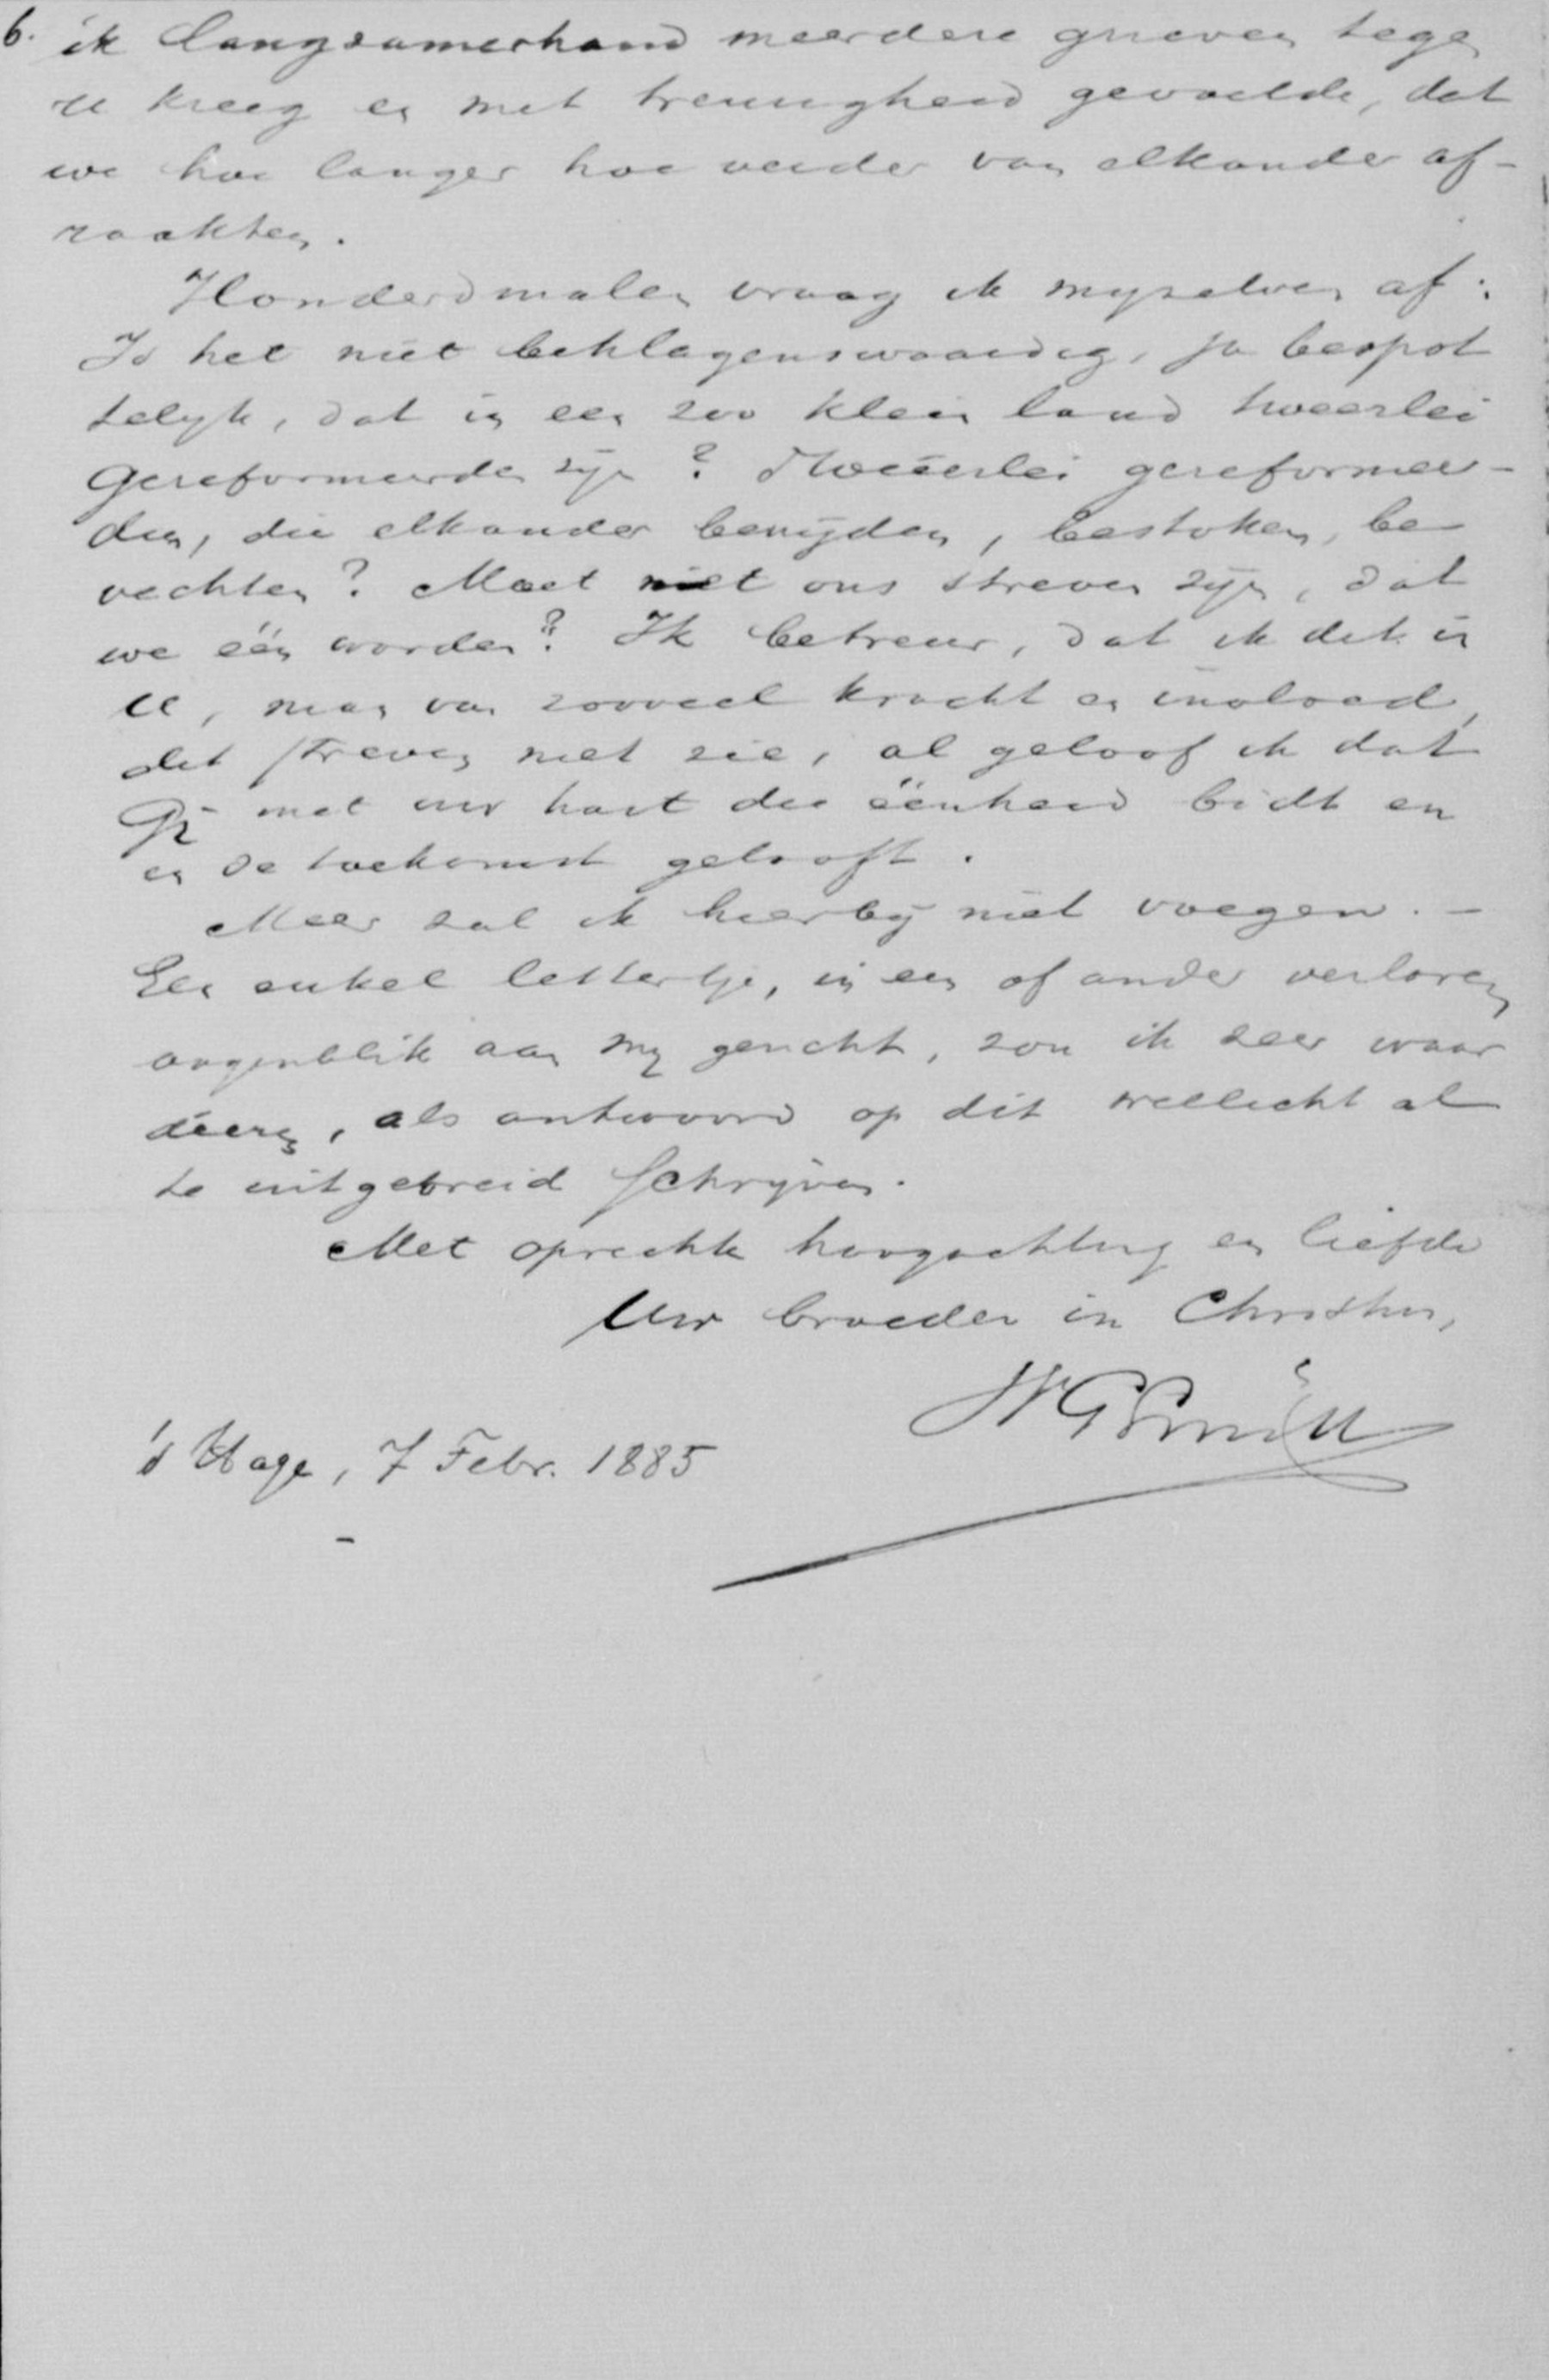 6. ik langzamerhand meerdere grieven tegen
u kreeg en met treurigheid gevoelde, dat
we hoe langer hoe verder van elkander af-
raakten.
Honderdmalen vraag ik myzelven af:
Is het niet beklagenswaardig, ja bespot
telyk, dat in een zoo klein land tweeerlei
Gereformeerden zijn? Tweeërlei gereformeer-
den, die elkander benijden, bestoken, be
vechten? Moet niet ons streven zijn, dat
we één worden? Ik betreur, dat ik dit in
u, man van zooveel kracht en invloed,
dit streven niet zie, al geloof ik dat
Gij met uw hart die éénheid bidt en
in de toekomst gelooft.
Meer zal ik hierbij niet voegen. -
Een enkel lettertje, in een of ander verloren
oogenblik aan my gericht, zou ik zeer waar
deeren, als antwoord op dit wellicht al
te uitgebreid schrijven.
Met oprechte hoogachting en liefde
Uw broeder in Christus,
WGSmitt
's Hage, 7 Febr. 1885